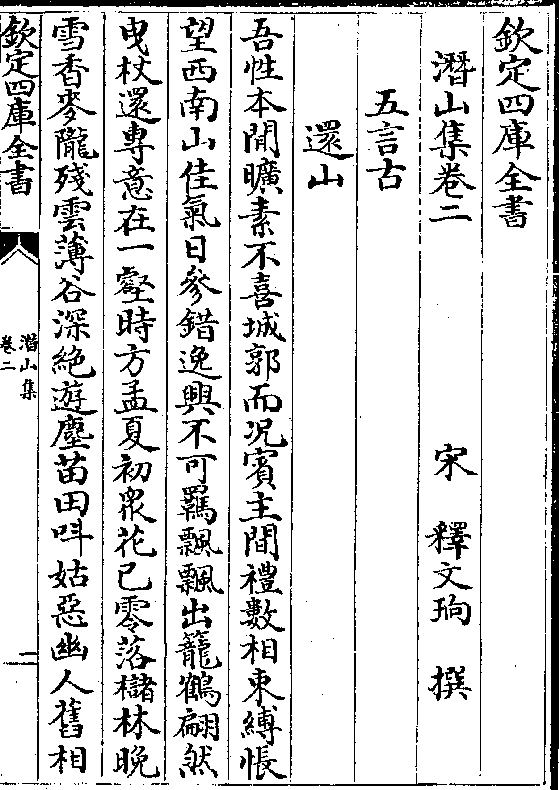 欽定四庫全書
潛山集卷二
宋 釋文珦 撰
五言古
還山
吾性本閒曠素不喜城郭而况賓主間禮數相束縛悵
望西南山佳氣日參錯逸興不可羈飄飄出籠鶴翩然
曳杖還專意在一壑時方孟夏初衆花已零落櫧林晩
雪香麥隴殘雲薄谷深絶遊塵苗田呌姑惡幽人舊相
欽定四庫全書
潛山集
卷二
二